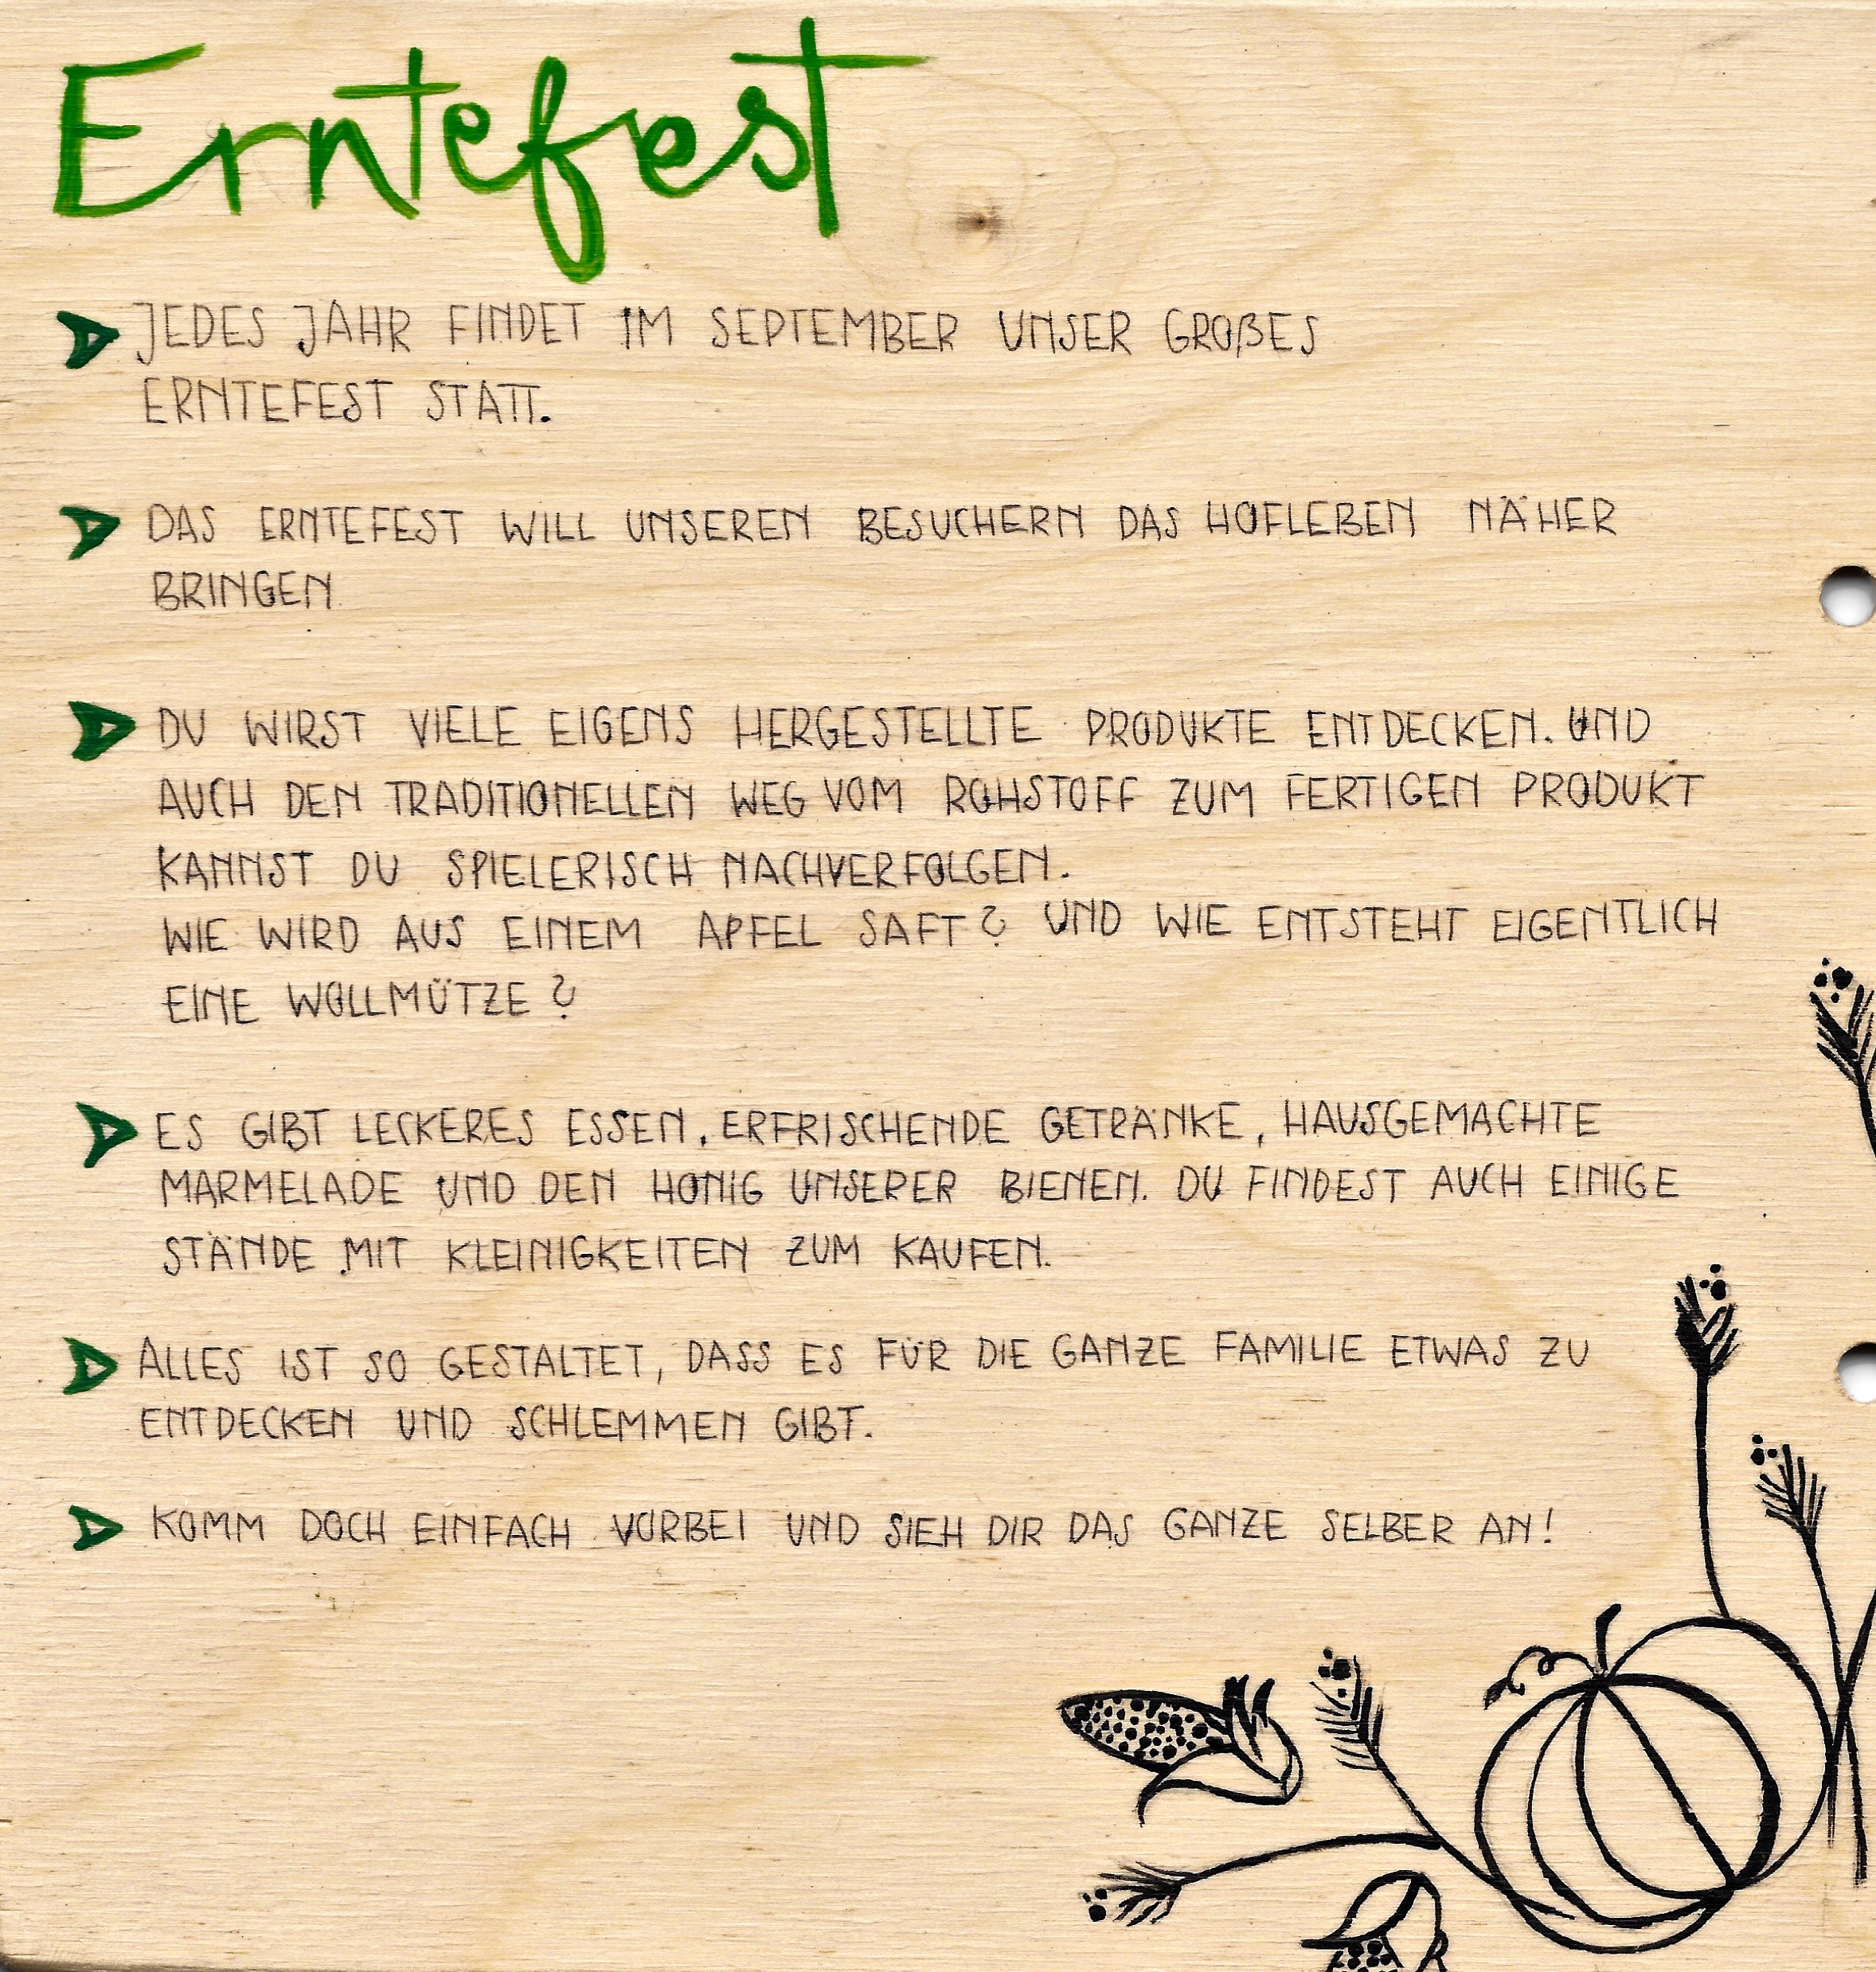 Erntefest
JEDES JAHR FINDET IM SEPTEMBER UNSER GROßES
ERNTEFEST STATT.
DAS ERNTEFEST WILL UNSEREN BESUCHERN DAS HOFLEBEN NÄHER
BRINGEN
DU WIRST VIELE EIGENS HERGESTELLTE PRODUKTE ENTDECKEN. UND
AUCH DEN TRADITIONELLEN WEG VOM ROHSTOFF ZUM FERTIGEN PRODUKT
KANNST DU SPIELERISCH NACHVERFOLGEN.
WIE WIRD AUS EINEM APFEL SAFT? UND WIE ENTSTEHT EIGENTLICH
EINE WOLLMÜTZE?
ES GIBT LECKERES ESSEN, ERFRISCHENDE GETRÄNKE, HAUSGEMACHTE
MARMELADE UND DEN HONIG UNSERER BIENEN. DU FINDEST AUCH EINIGE
STÄNDE MIT KLEINIGKEITEN ZUM KAUFEN.
ALLES IST SO GESTALTET, DASS ES FÜR DIE GANZE FAMILIE ETWAS ZU
ENTDECKEN UND SCHLEMMEN GIBT.
KOMM DOCH EINFACH VORBEI UND SIEH DIR DAS GANZE SELBER AN!